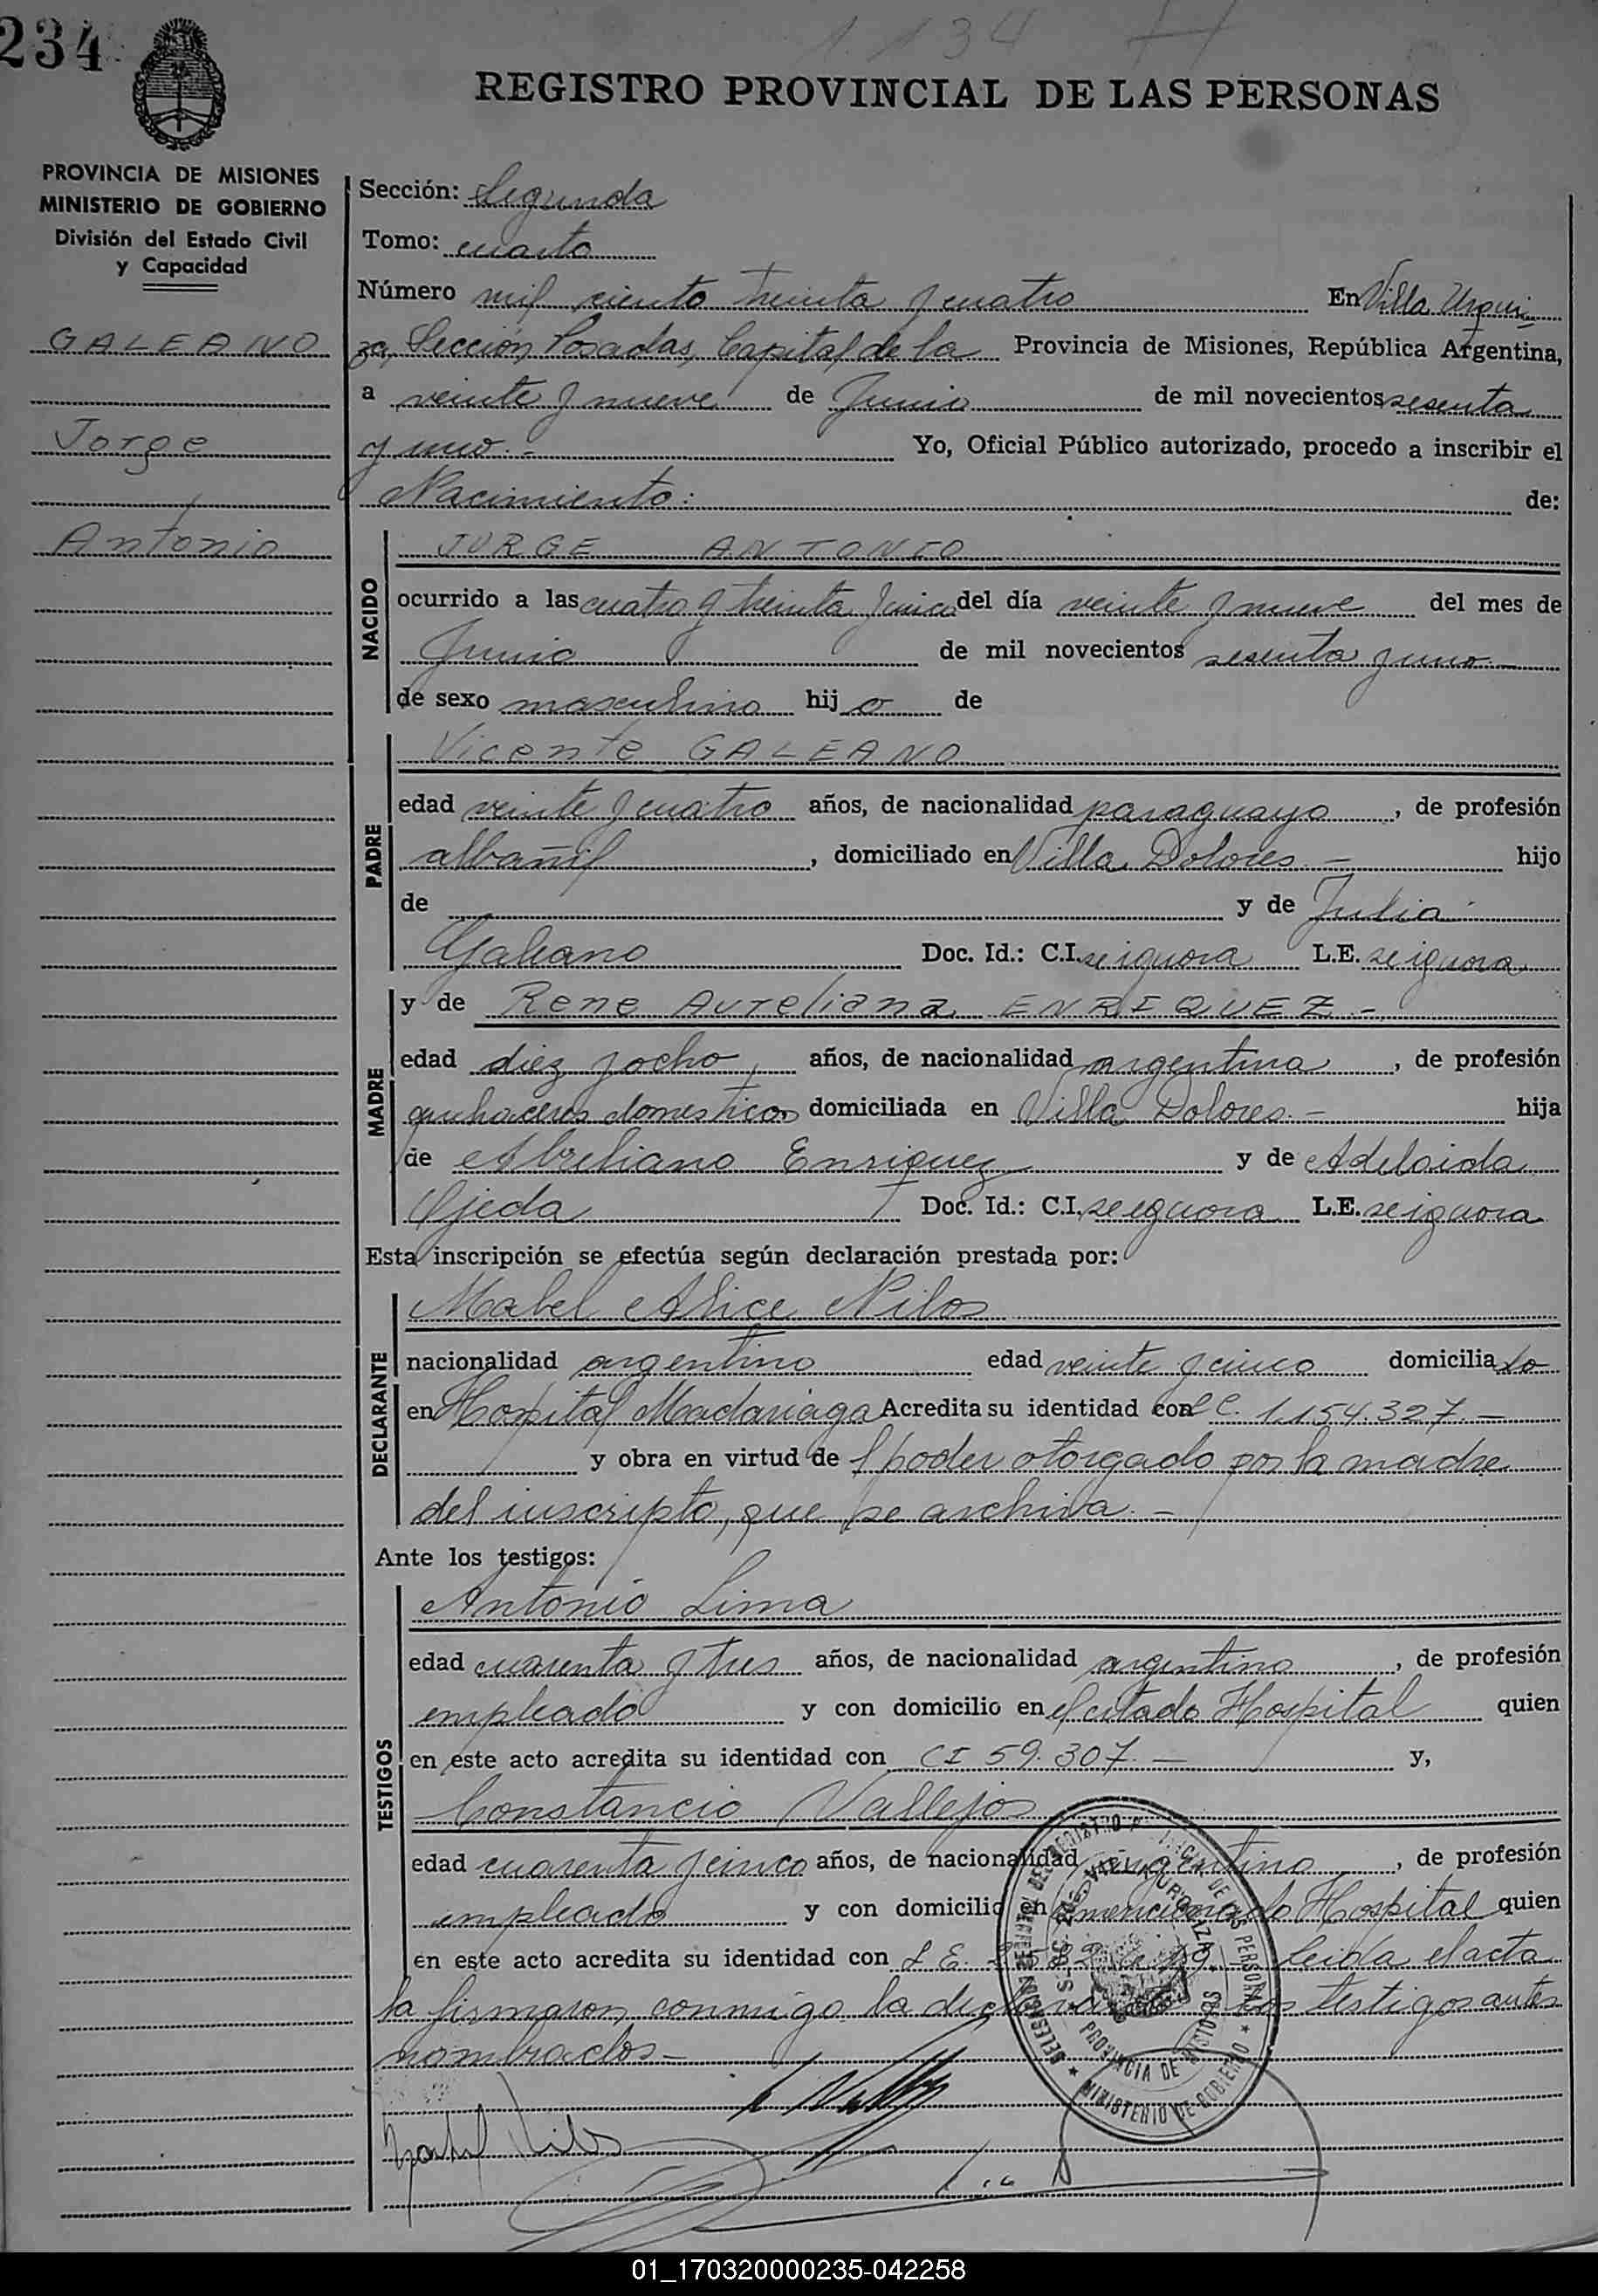 234
1134
REGISTRO PROVINCIAL DE LAS PERSONAS
PROVINCIA DE MISIONES
MINISTERIO DE GOBIERNO
División del Estado Civil
y Capacidad
GALEANO
Jorge
Antonio
Sección: Segunda
Tomo: cuarto
Número mil ciento treinta y cuatro En Villa Urqui-
za, Sección Posadas, Capital de la Provincia de Misiones, República Argentina,
a veinte y nueve de Junio de mil novecientos sesenta
y uno.- Yo, Oficial Público autorizado, procedo a inscribir el
Nacimiento: de:
NACIDO
JORGE ANTONIO
ocurrido a las cuatro y treinta y cinco del día veinte y nueve del mes de
Junio de mil novecientos sesenta y uno.-
de sexo masculino hijo de
PADRE
Vicente GALEANO
edad veinte y cuatro años, de nacionalidad paraguayo, de profesión
albañil, domiciliado en Villa Dolores.- hijo
de y de Julia
Galeano Doc. Id.: C.I. se ignora L.E. se ignora
MADRE
y de Rene Aureliana ENRIQUEZ.-
edad diez y ocho, años, de nacionalidad argentina, de profesión
quehaceres domesticos domiciliada en Villa Dolores.- hija
de Enriquez y de Adelaida
Ojeda Doc. Id.: C.I. se ignora L.E. se ignora
Esta inscripción se efectúa según declaración prestada por:
DECLARANTE
Mabel Alice Nilos
nacionalidad argentino edad veinte y cinco domiciliado
en Hospital Madariaga Acredita su identidad con L C. 1.154.327.-
y obra en virtud de l poder otorgado por la madre
del inscripto, que se archiva.-
Ante los testigos:
TESTIGOS
Antonio Lima
edad cuarenta y tres años, de nacionalidad argentino, de profesión
empleado y con domicilio en el citado Hospital quien
en este acto acredita su identidad con CI 59.307.- y,
Constancio Vallejos
edad cuarenta y cinco años, de nacionalidad argentino, de profesión
empleado y con domicilio en mencionado Hospital quien
en este acto acredita su identidad con L E. Leida el acta
la firmaron conmigo la los testigos antes
nombrados.-
PROVINCIA DE MISIONES
MINISTERIO DE GOBIERNO
01_170320000235-042258